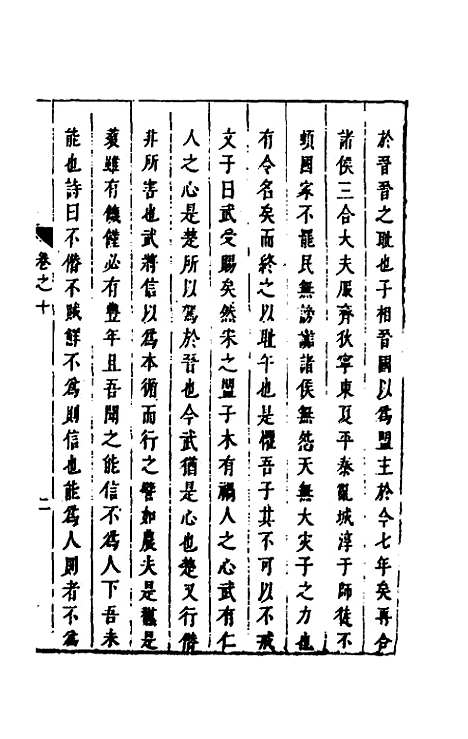 於晉晉之耻也子相晉國以為盟主於今七年矣再合
諸侯三合大夫服齊狄寧東夏平秦亂城淳于師徒不
頓國家不罷民無謗讟諸侯無怨天無大灾子之力也
有令名矣而終之以耻午也是懼吾子其不可以不戒
文子曰武受賜矣然宋之盟子木有禍人之心武有仁
人之心是楚所以駕於晉也今武猶是心也楚又行僭
非所害也武將信以為本循而行之譬如農夫是穮是
蓘雖有饑饉必有豊年且吾聞之能信不為人下吾未
能也詩曰不僭不賊鮮不為則信也能為人則者不為
卷之十
二